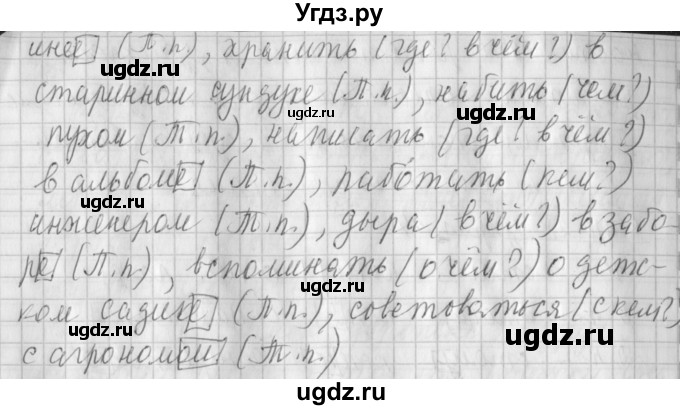 Угдз.ру
ине (П.п.), хранить (где? в чём?) в
старинном сундуке (П.п.), набить (чем?)
пухом (Т.п.), написать (где? в чём?)
в альбоме (П.п.), рабо́тать (кем?)
инженером (Т.п.), дыра (в чём?) в забо-
ре (П.п.), вспоминать (о чём?) о детс-
ком садике (П.п.), советоваться (с кем?)
с агрономом (Т.п.)
ugdz.ru
ugdz.ru
ugdz.ru
ugdz.ru
ugdz.ru
ugdz.ru
ugdz.ru
ugdz.ru
ugdz.ru
ugdz.ru